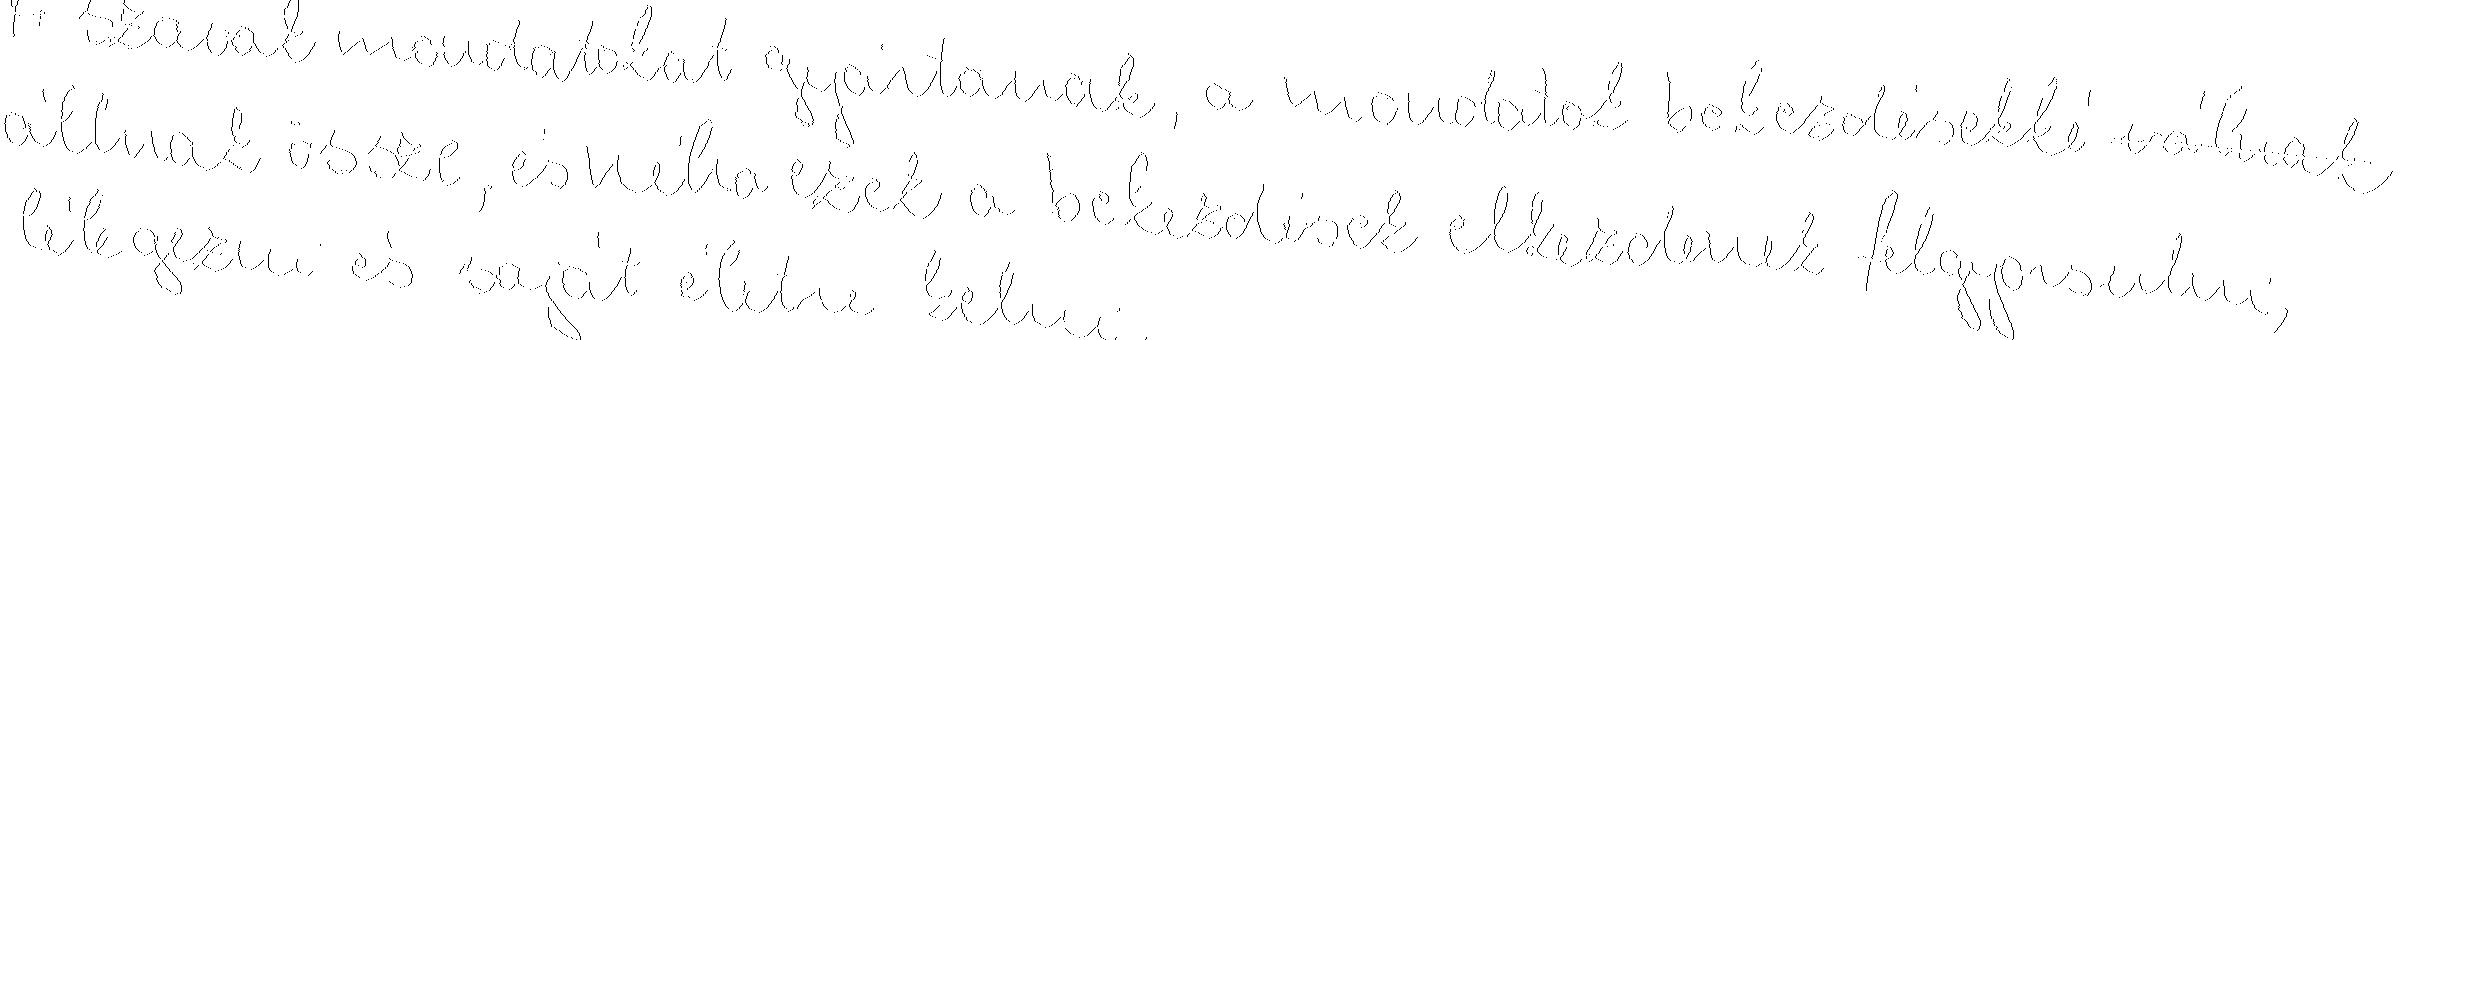 A szavak mondatokat gyártanak, a mondatok bekezdésekké ~~válnak~~
állnak össze, és néha ezek a bekezdések elkezdenek felgyorsulni,
lélegezni és saját életre kelni.